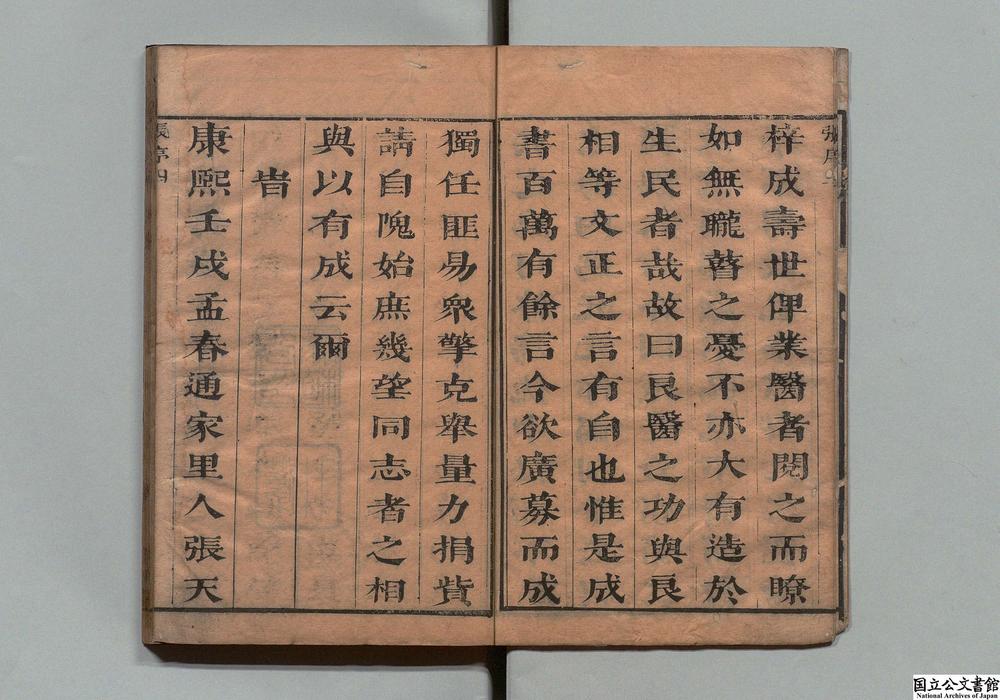 梓成壽世俾業醫者閱之而瞭
如無矓瞽之憂不亦大有造於
生民者哉故曰良醫之功與良
相等文正之言有自也惟是成
書百萬有餘言今欲廣募而成
獨任匪易衆擎克舉量力捐貲
請自隗始庶幾望同志者之相
與以有成云爾
旹
康熙壬戌孟春通家里人張天
張序四
国立公文書館
National Archives of Japan